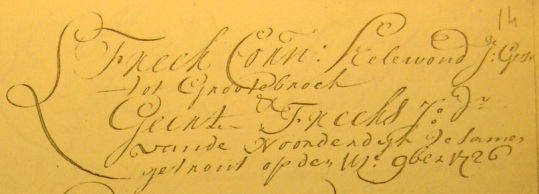 14
Freek Corn: Stelewond J: Ges:
tot Grootebroek
&
Geert Freeks J: Dr
vande Noorderdijk te samen
getrout op den 9ber 1726